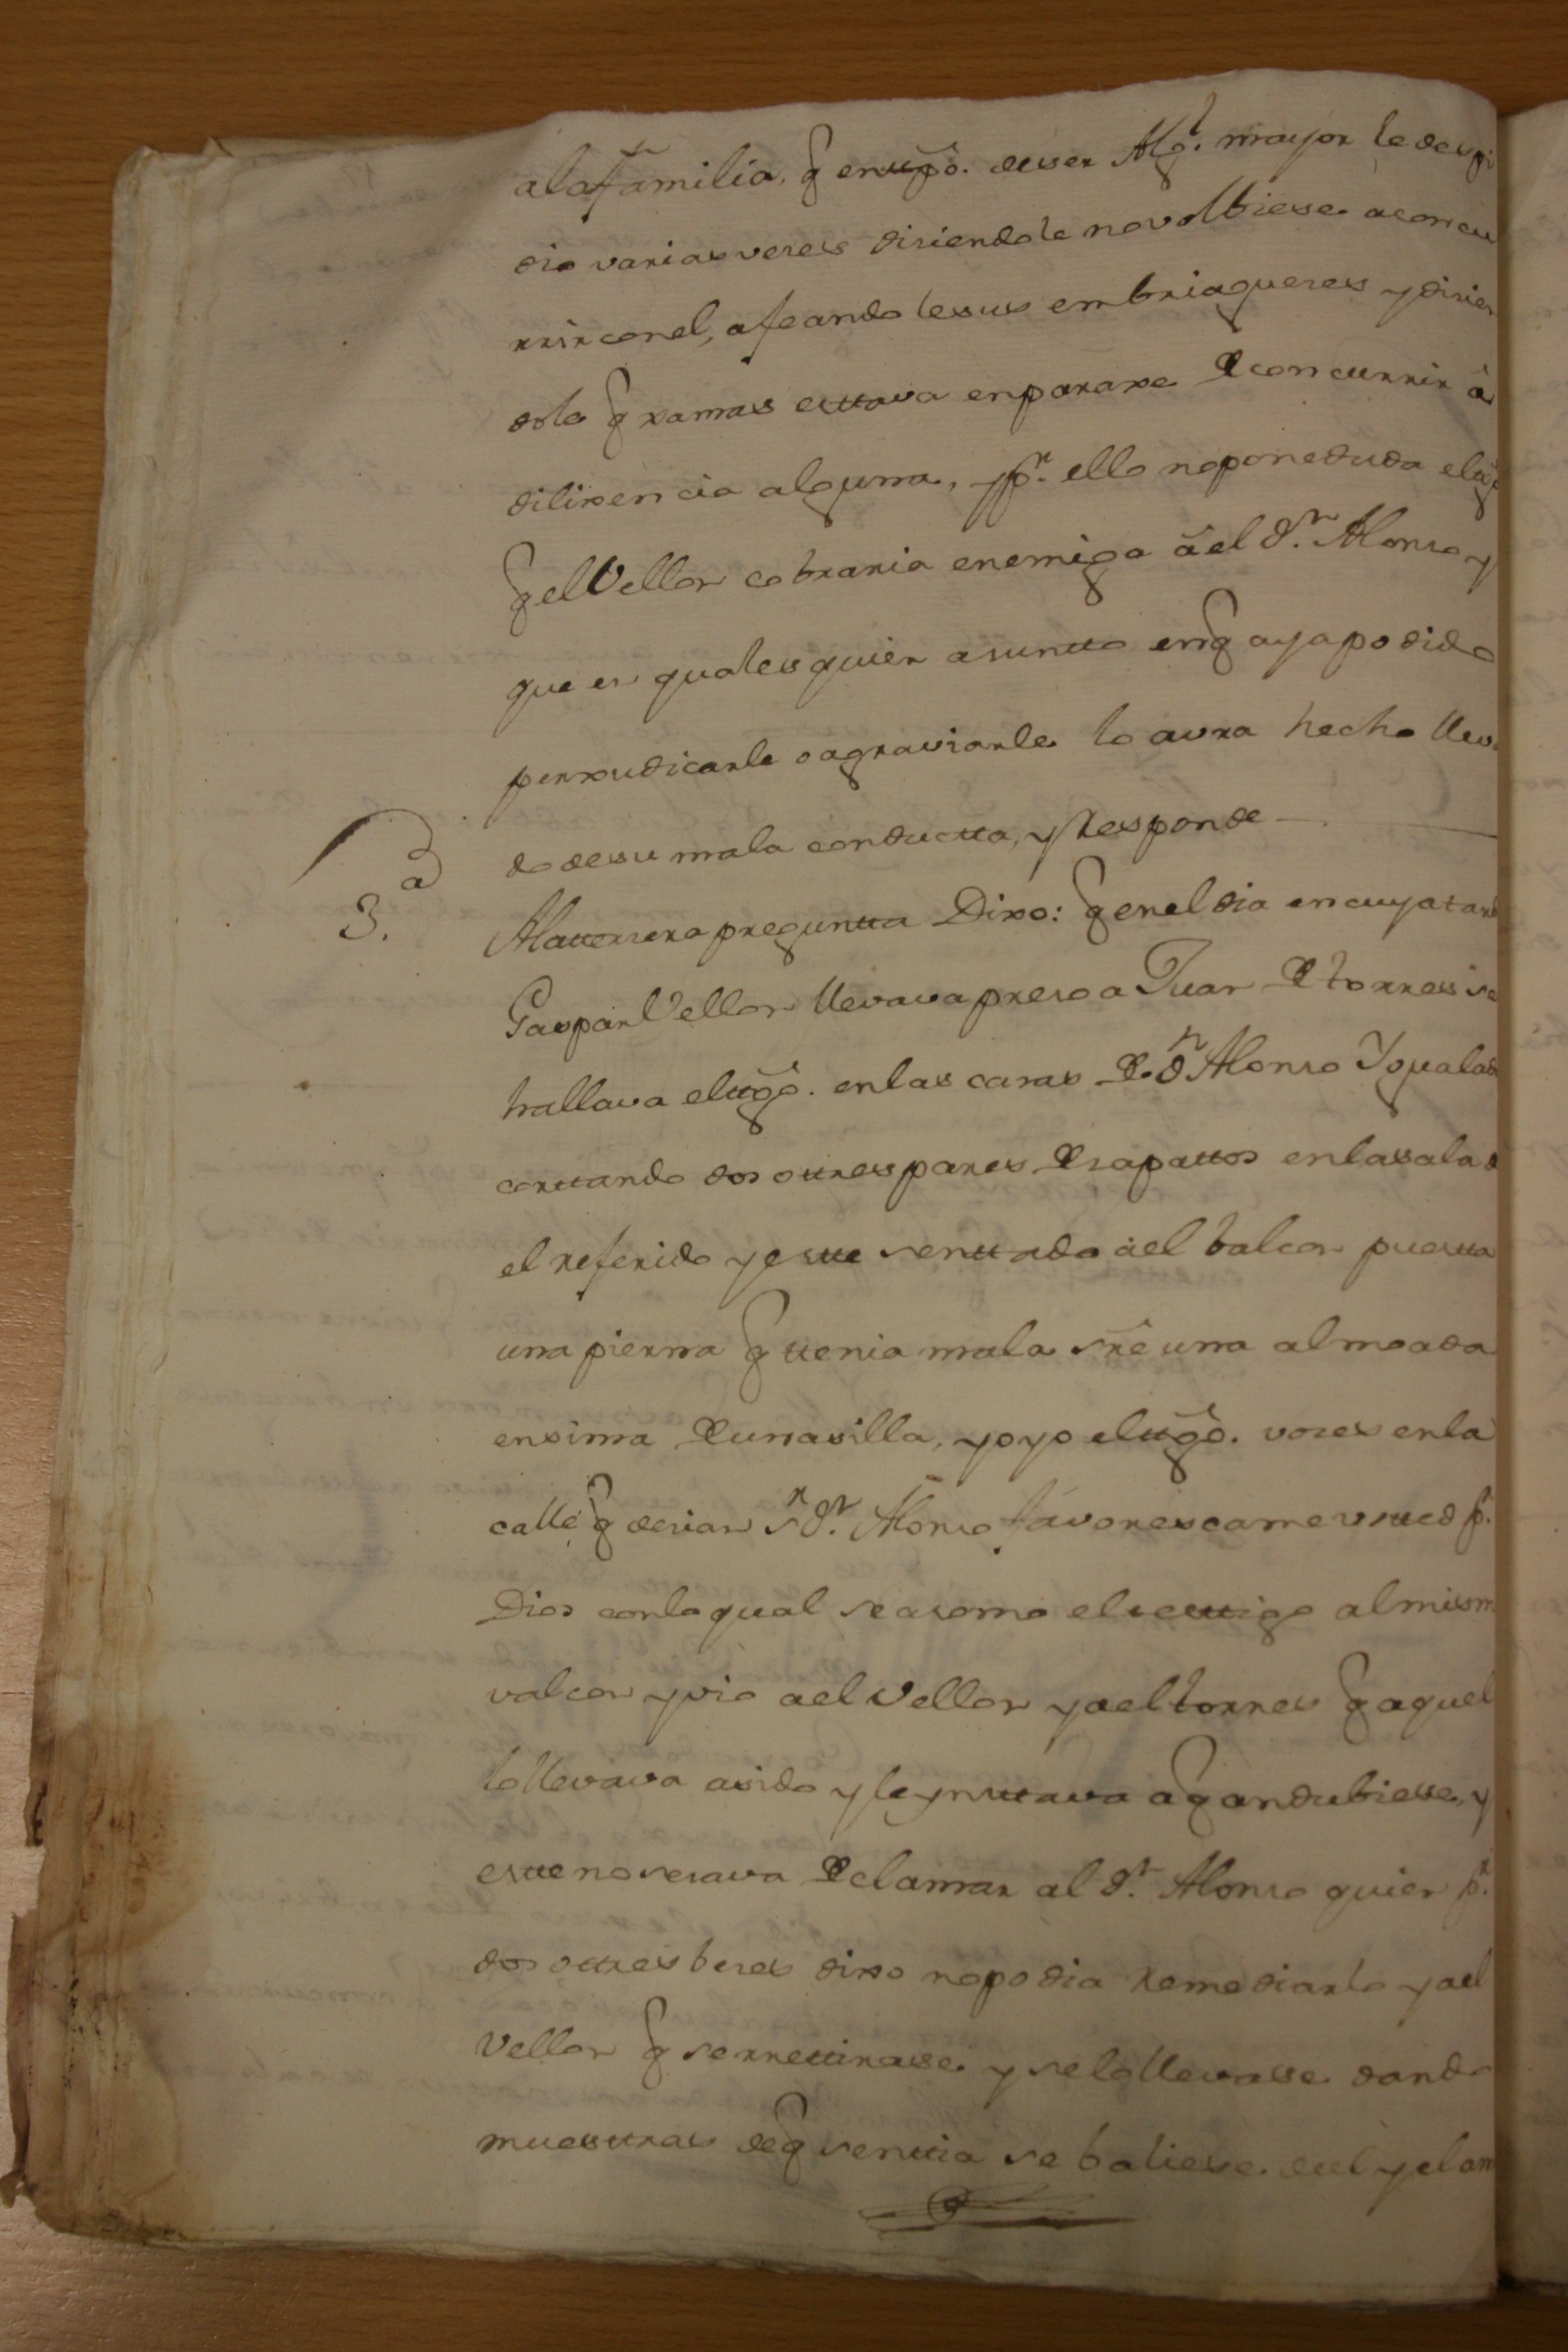 ala familia, q en ttpô. de ser Algl. mayor le despi
dio varias veses disiendole no volbiese a concu
rrir con el, afeandole sus embriagueses y disien
dole q xamas esttava en paraxe de concurrir â
dilixencia alguna, y pr. ello no pone duda el ttgô
q el Vellon cobraria enemiga â el Dn. Alonso y
que en qualesquier asuntto en q aya podido
perxudicarle o agraviarle lo avra hecho lleva
do de su mala conductta, y Responde
3.a
A la ttersera preguntta Dixo: q en el dia en cuya tard
Gaspar Vellon llevava preso a Juan de torres se
hallava el ttgô. en las casas de Dn Alonso Ygualad
corttando dos o ttres pares de sapattos en la sala d
el referido y estte senttado â el balcon puestta
una pierna q ttenia mala sre una almoada
ensima de una silla, y oyo el ttgô. voses en la
calle q desian sr Dn. Alonso favorescame usted pr.
Dios con lo qual se asomo el testtigo al mism
valcon y vio a el Vellon y a el torres q aquel
lo llevava asido y le ynsttava a q andubiese, y
estte no sesava de clamar al Dn. Alonso quien pr.
dos o ttres beses dixo no podia remediarlo y a el
Vellon q se rettirase y se lo llevasse dando
muesttras de q senttia se baliese del y clam